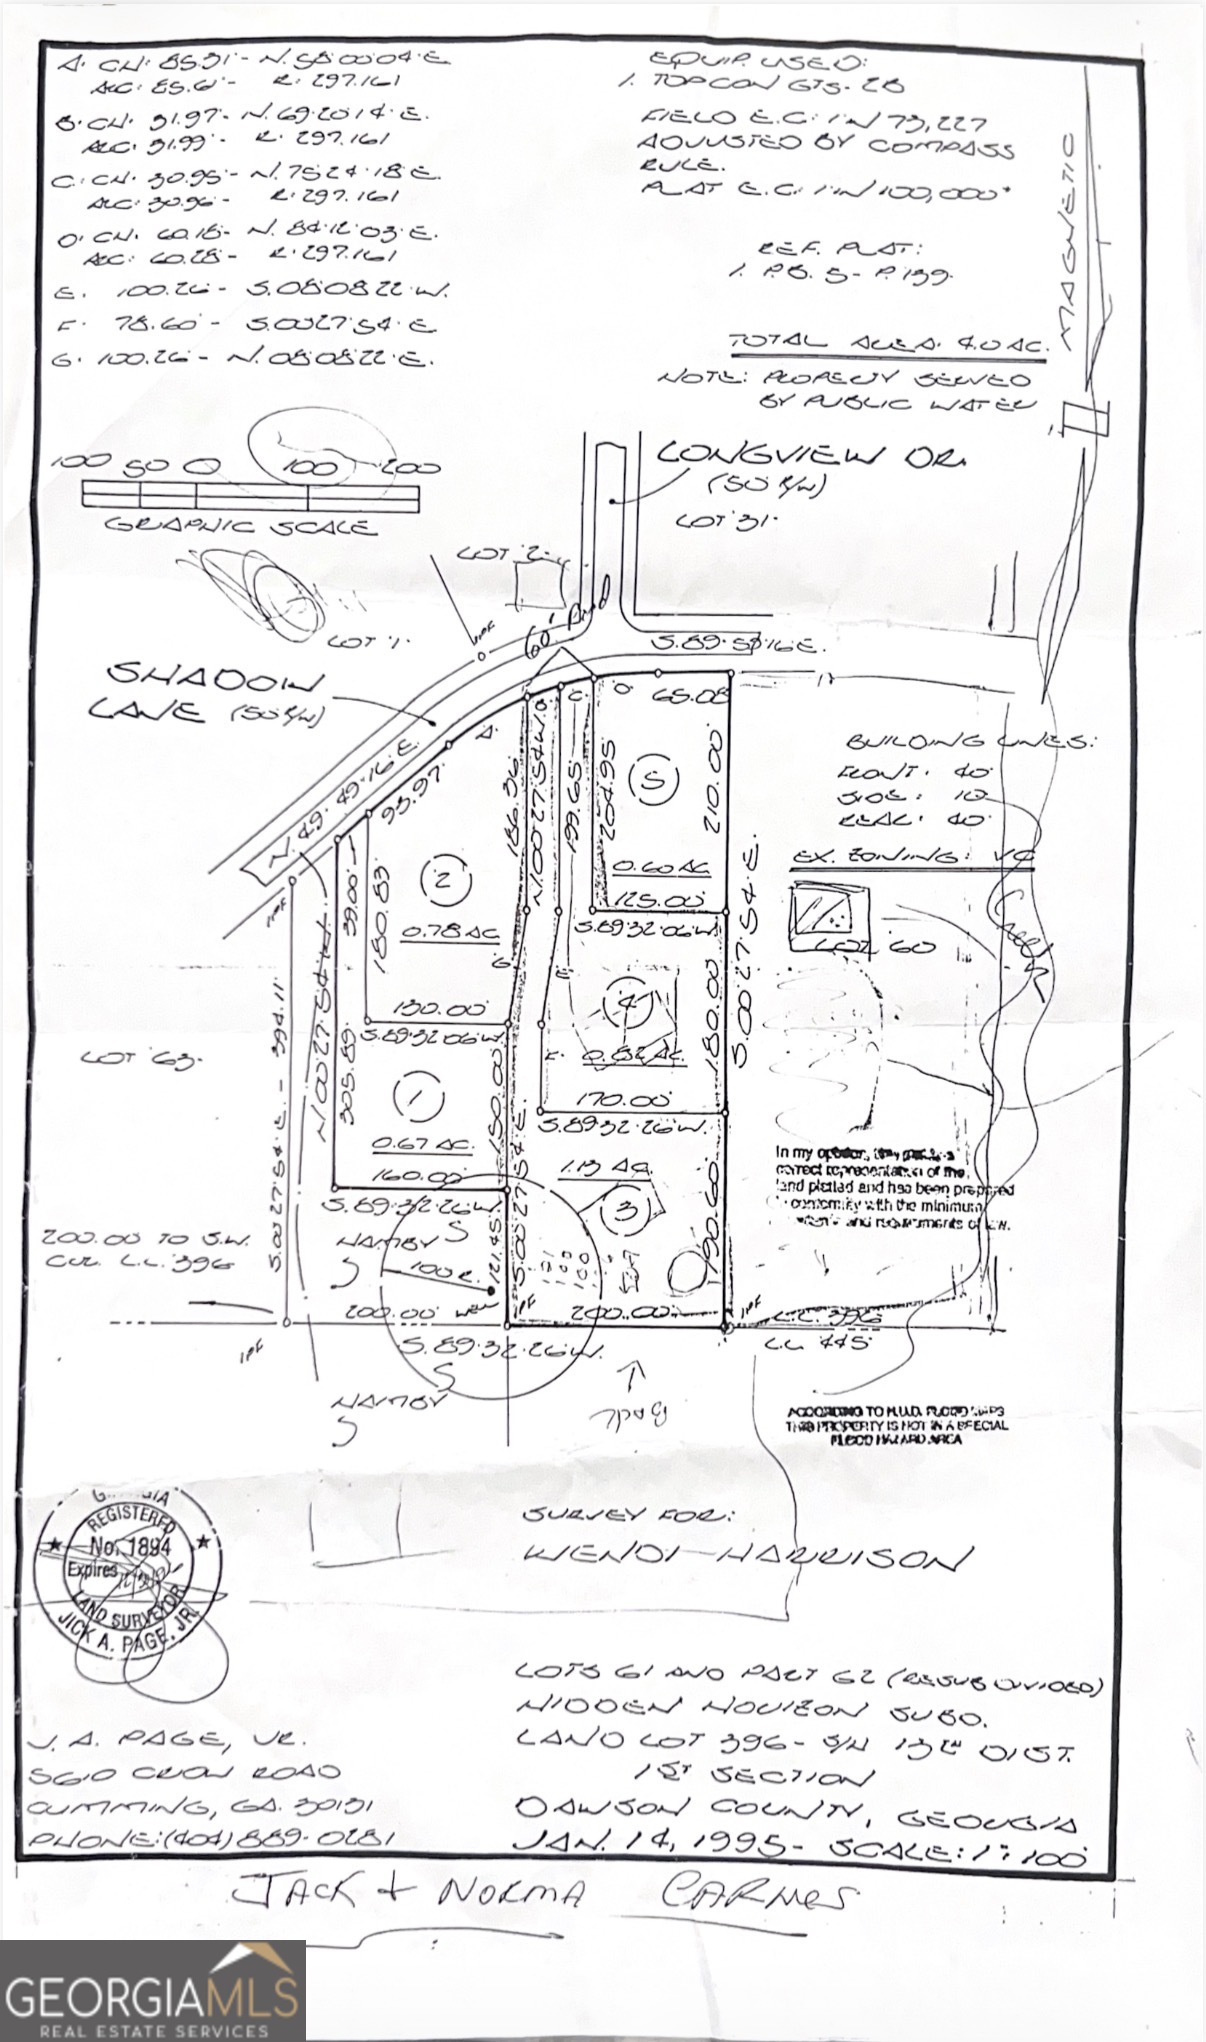 A. CH. 85.31' - N. 58 00 04 E.
ARC. 85.61' - R. 297.161
B. CH. 31.97' - N. 69 20 14 E.
ARC. 31.99' - R. 297.161
C. CH. 30.95' - N. 75 24 18 E.
ARC. 30.96' - R. 297.161
D. CH. 60.18' - N. 84 12 03 E.
ARC. 60.28' - R. 297.161
E. 100.26' - S. 08 08 22 W.
F. 78.60' - S. 00 27 54 E.
G. 100.26' - N. 08 08 22 E.
EQUIP. USED:
1. TOPCON GTS-2B
FIELD E.C. 1 IN 73,227
ADJUSTED BY COMPASS
RULE.
PLAT E.C. 1 IN 100,000+
REF. PLAT:
1. P.B. 5 - P. 139
TOTAL AREA. 4.0 AC.
NOTE: PROPERTY SERVED
BY PUBLIC WATER
MAGNETIC
100 50 0 100 200
GRAPHIC SCALE
LONGVIEW DR.
(50' R/W)
LOT 31
LOT 2
LOT 1
60' Road
SHADOW
LANE (50' R/W)
S. 89 58 16 E.
N. 49 49 16 E.
93.97
A.
B.
C.
D.
65.08
186.36
N. 00 27 54 W.
199.65
204.95
210.00
5
0.60 AC.
125.00
S. 89 32 06 W.
39.00
180.83
2
0.78 AC.
G.
E.
130.00
S. 89 32 06 W.
4
0.82 AC.
F.
180.00
S. 00 27 54 E.
170.00
S. 89 32 26 W.
BUILDING LINES:
FRONT. 40'
SIDE: 10'
REAR: 40'
EX. ZONING: VC
LOT 60
Creek
LOT 63
S. 00 27 54 E. - 394.11'
N. 00 27 54 W.
305.89
1
0.67 AC.
150.00
160.00
S. 89 32 26 W.
1.13 AC.
3
190.60
121.45
S. 00 27 54 E.
200.00 TO S.W.
COR. L.L. 396
HAMBY
100 R.
200.00
WELL
IPF
200.00
IPF
S. 89 32 26 W.
IPF
L.L. 396
L.L. 445
HAMBY
Back
In my opinion, this plat is a
correct representation of the
land platted and has been prepared
in conformity with the minimum
standards and requirements of law.
ACCORDING TO H.U.D. FLOOD MAPS
THIS PROPERTY IS NOT IN A SPECIAL
FLOOD HAZARD AREA
GEORGIA
REGISTERED
No. 1894
Expires
LAND SURVEYOR
JICK A. PAGE, JR.
SURVEY FOR:
WENDI HARRISON
LOTS 61 AND PART 62 (RESUBDIVIDED)
HIDDEN HORIZON SUBD.
LAND LOT 396 - S/H 13TH DIST.
1ST SECTION
DAWSON COUNTY, GEORGIA
JAN. 14, 1995 - SCALE: 1" : 100'
J. A. PAGE, JR.
5610 CROW ROAD
CUMMING, GA. 30131
PHONE: (404) 889-0281
JACK & NORMA CARNES
GEORGIAMLS
REAL ESTATE SERVICES